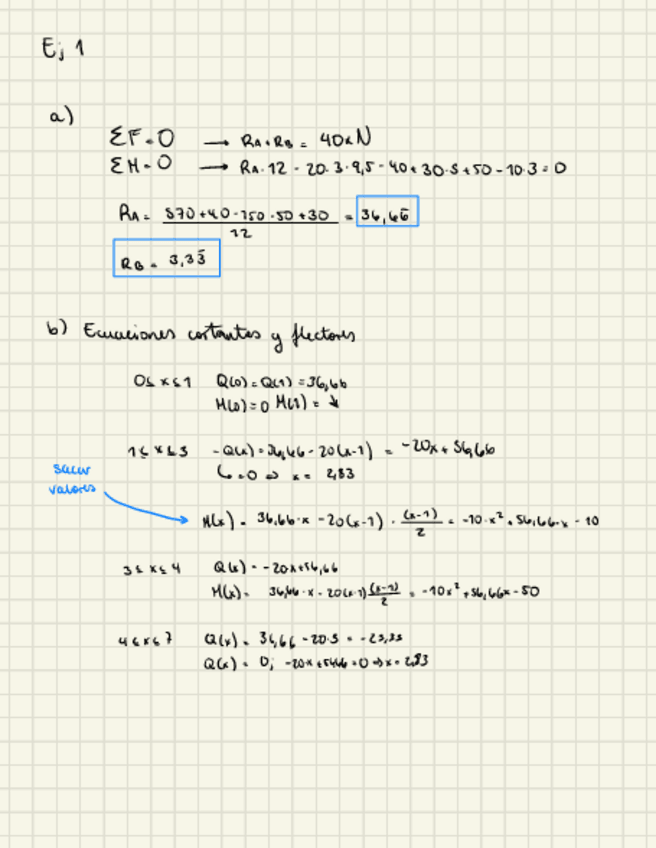 Ej 1
a)
ΣF=0 → RA+RB = 40kN
ΣM=0 → RA·12 - 20·3·9,5 - 40 + 30·5 + 50 - 10·3 = 0
RA = (570+40-150-50+30)/12 = 36,66̅
RB = 3,33̅
b) Ecuaciones cortantes y flectores
0≤x≤1 Q(0)=Q(1)=36,66
M(0)=0 M(1)=
1≤x≤3 -Q(x)=36,66-20(x-1) = -20x+56,66
↳=0 ⇒ x= 2,83
sacar
valores
M(x)= 36,66·x -20(x-1)·(x-1)/2 = -10·x²+56,66·x - 10
3≤x≤4 Q(x)= -20x+56,66
M(x)= 36,66·x - 20(x-1)(x-1)/2 = -10x²+56,66x-50
4≤x≤7 Q(x)= 36,66 -20·3 = -23,33
Q(x)= 0; -20x+56,66=0 ⇒ x=2,83